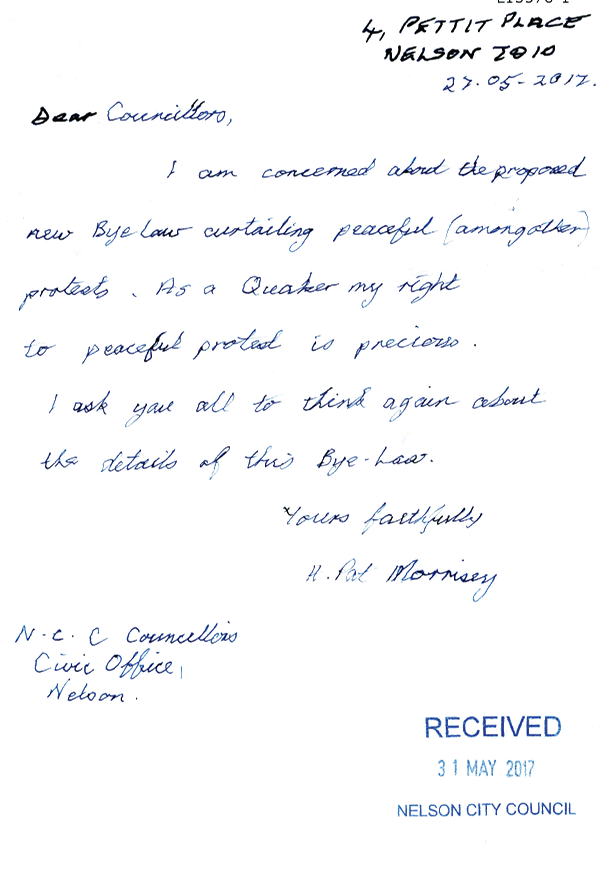 4, PETTIT PLACE
NELSON 7010
27.05-2017.
Dear Councillors,
I am concerned about the proposed
new Bye Law curtailing peaceful (among other)
protests. As a Quaker my right
to peaceful protest is precious.
I ask you all to think again about
the details of this Bye-Law.
Yours faithfully
H. Pat Morrisey
N.C.C Councillors
Civic Office,
Nelson.
RECEIVED
31 MAY 2017
NELSON CITY COUNCIL